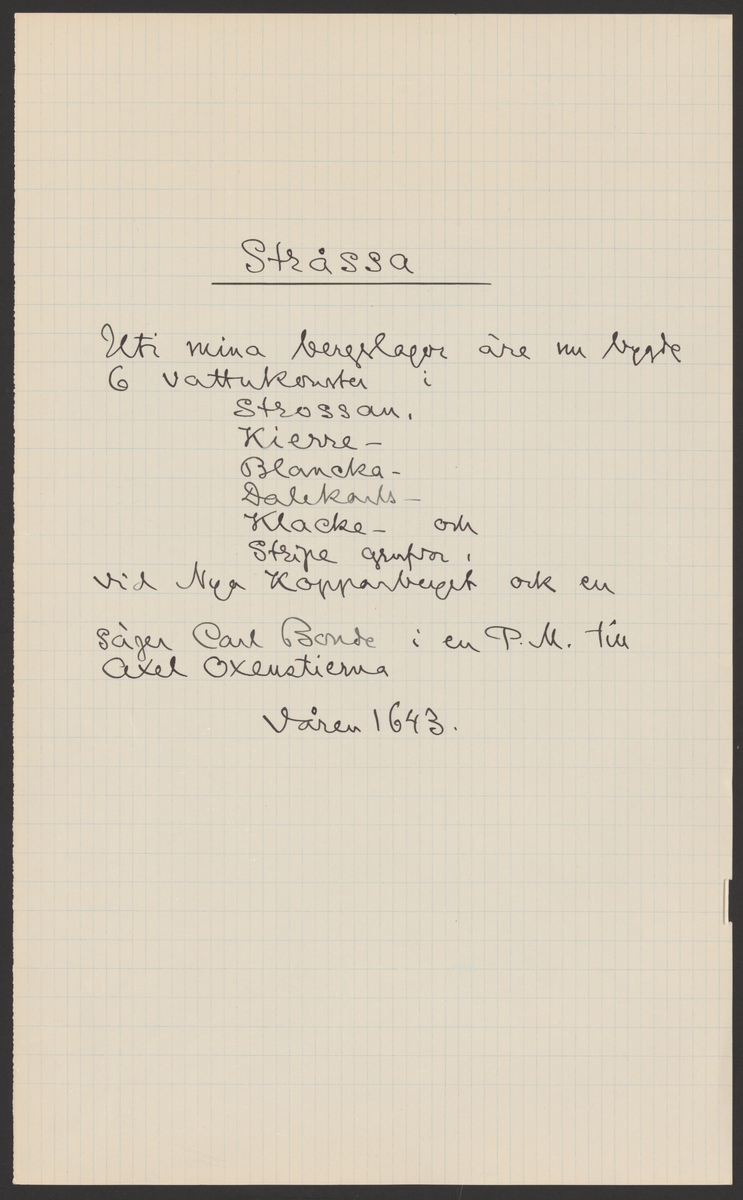 Stråssa
Uti mina bergslagor äre nu bygde
6 vattukonster i
Strossan,
Kierre-
Blancka-
Dalkarls-
Klacke- och
Stripe grufvor,
vid Nya Kopparberget ock en
säger Carl Bonde i en P.M. till
Axel Oxenstierna
Våren 1643.